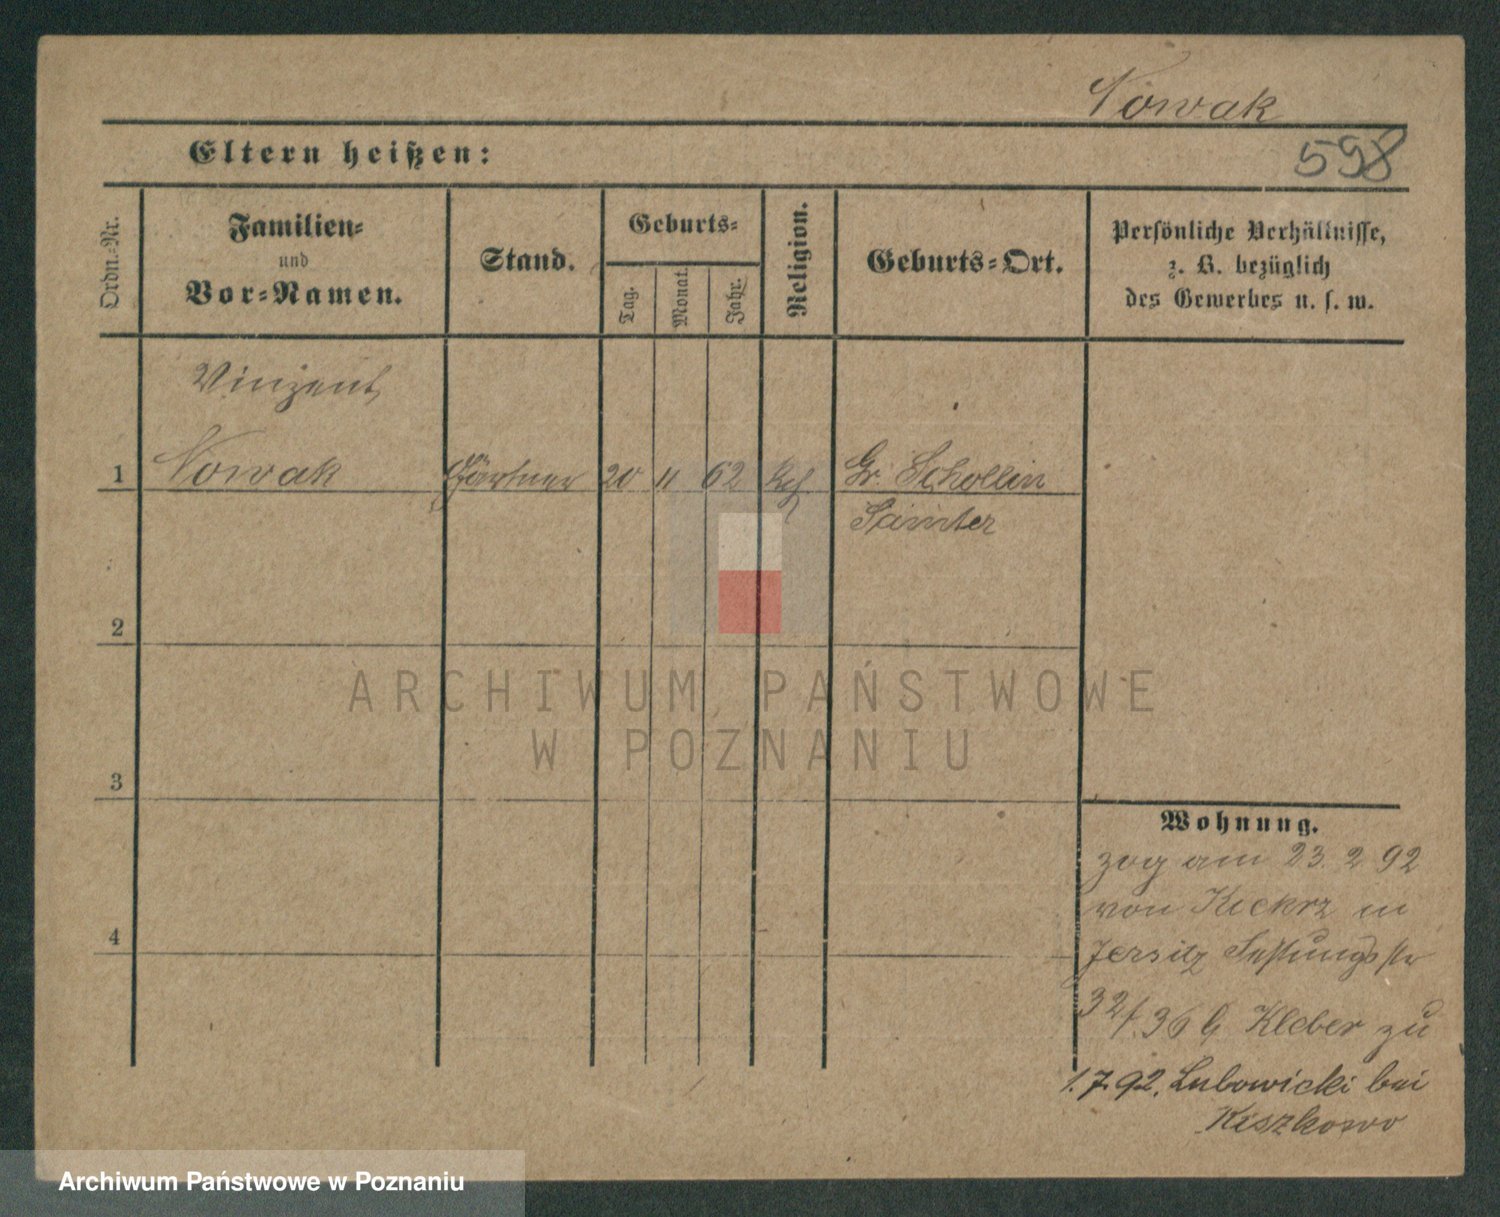 Nowak
Eltern heißen:
598
Ordn.-Nr.
Familien-
und
Vor-Namen.
Stand.
Geburts-
Tag.
Monat.
Jahr.
Religion.
Geburts-Ort.
Persönliche Verhältnisse,
z. B. bezüglich
des Gewerbes u. s. w.
Vinzent
1 Nowak Gärtner 20 11 62 Gr. Schollin
Samter
2
3
4
ARCHIWUM PAŃSTWOWE
W POZNANIU
Wohnung.
zog am 23. 2 92
von Kiekrz in
Jersitz
32/36 b Kleber zu
1.7.92. Lubowicki bei
Kiszkowo
Archiwum Państwowe w Poznaniu